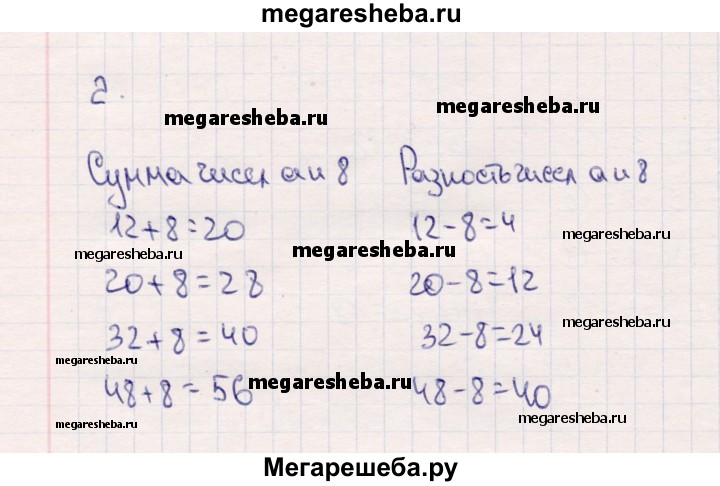 megaresheba.ru
2.
megaresheba.ru megaresheba.ru
Сумма чисел а и 8 Разность чисел а и 8
12+8=20 12-8=4
megaresheba.ru megaresheba.ru megaresheba.ru
20+8=28 20-8=12
32+8=40 32-8=24
megaresheba.ru megaresheba.ru
48+8=56 megaresheba.ru 48-8=40
megaresheba.ru megaresheba.ru
Мегарешеба.ру